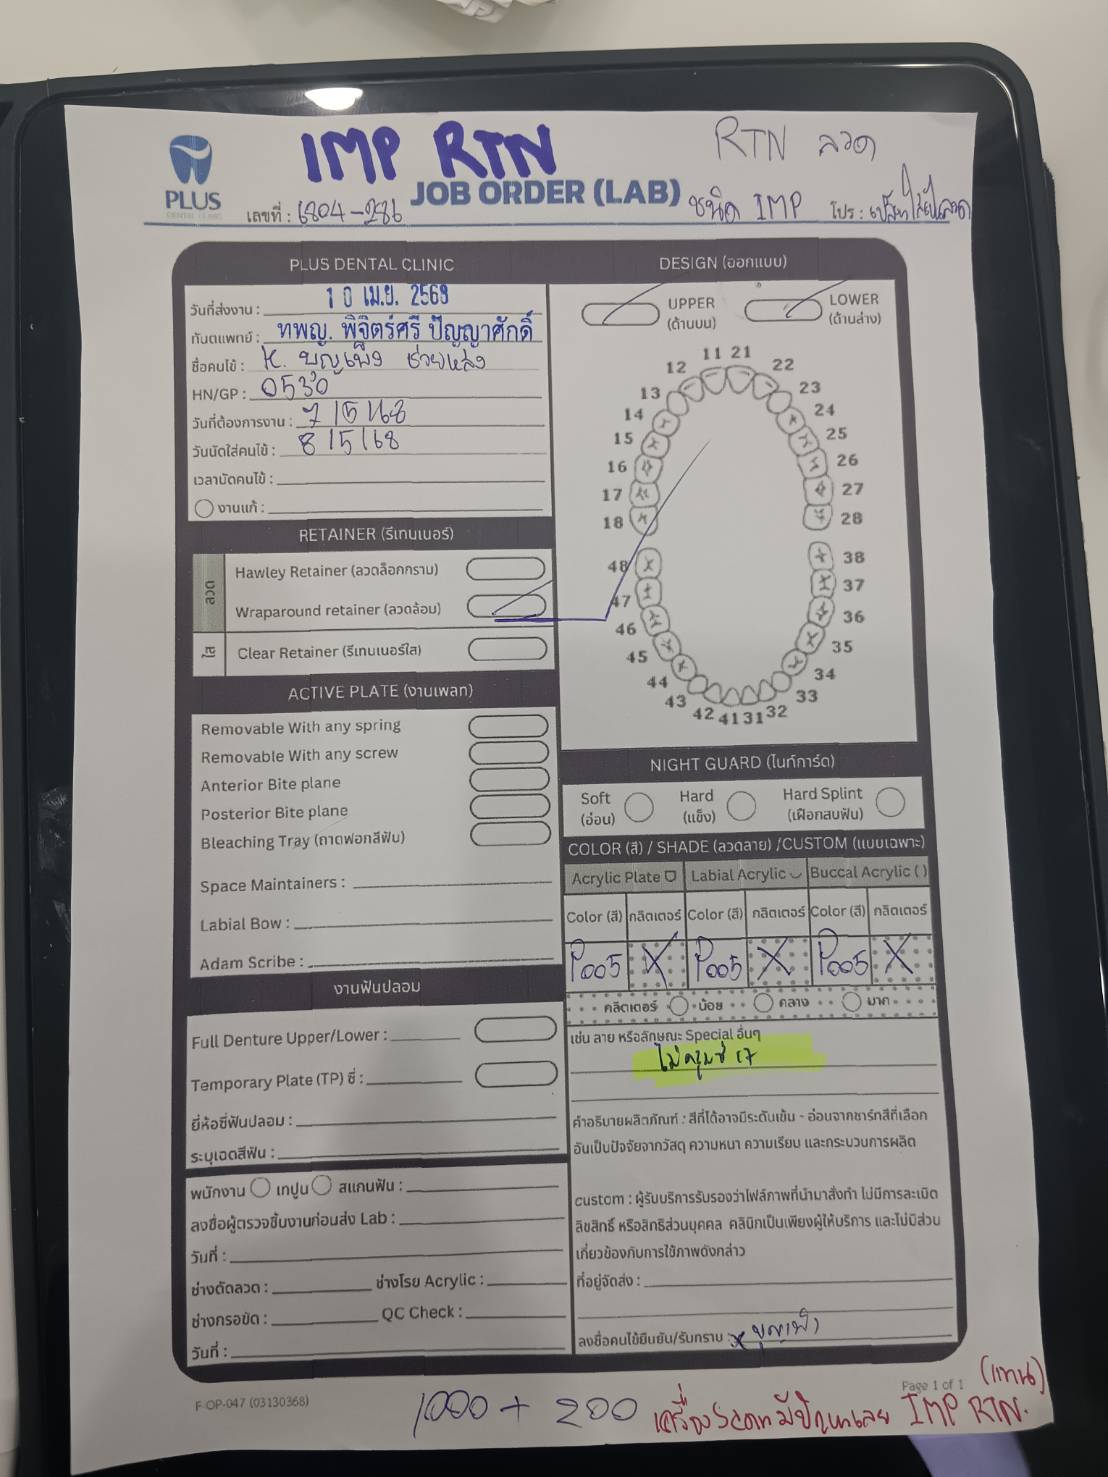 IMP RTN
RTN ลวด
PLUS
DENTAL CLINIC
JOB ORDER (LAB)
เลขที่ : 6804-286
ชนิด IMP โปร :
PLUS DENTAL CLINIC
วันที่ส่งงาน : 10 เม.ย. 2569
ทันตแพทย์ : ทพญ. พิจิตร์ศรี ปัญญาศักดิ์
ชื่อคนไข้ : K. บุญเพ็ง ช่วยหล่ง
HN/GP : 0530
วันที่ต้องการงาน : 7/5/68
วันนัดใส่คนไข้ : 8/5/68
เวลานัดคนไข้ :
งานแก้ :
RETAINER (รีเทนเนอร์)
ลวด
Hawley Retainer (ลวดล็อกกราม)
Wraparound retainer (ลวดล้อม)
ใส
Clear Retainer (รีเทนเนอร์ใส)
ACTIVE PLATE (งานเพลท)
Removable With any spring
Removable With any screw
Anterior Bite plane
Posterior Bite plane
Bleaching Tray (ถาดฟอกสีฟัน)
Space Maintainers :
Labial Bow :
Adam Scribe :
งานฟันปลอม
Full Denture Upper/Lower :
Temporary Plate (TP) ซี่ :
ยี่ห้อซี่ฟันปลอม :
ระบุเฉดสีฟัน :
พนักงาน เทปูน สแกนฟัน :
ลงชื่อผู้ตรวจชิ้นงานก่อนส่ง Lab :
วันที่ :
ช่างดัดลวด : ช่างโรย Acrylic :
ช่างกรอขัด : QC Check :
วันที่ :
F-OP-047 (03130368)
DESIGN (ออกแบบ)
UPPER (ด้านบน)
LOWER (ด้านล่าง)
11 21
12 22
13 23
14 24
15 25
16 26
17 27
18 28
48 38
47 37
46 36
45 35
44 34
43 33
42 41 31 32
NIGHT GUARD (ไนท์การ์ด)
Soft (อ่อน)
Hard (แข็ง)
Hard Splint (เฝือกสบฟัน)
COLOR (สี) / SHADE (ลวดลาย) /CUSTOM (แบบเฉพาะ)
Acrylic Plate Labial Acrylic Buccal Acrylic ( )
Color (สี) กลิตเตอร์ Color (สี) กลิตเตอร์ Color (สี) กลิตเตอร์
P005 X P005 X P005 X
กลิตเตอร์ น้อย กลาง มาก
เช่น ลาย หรือลักษณะ Special อื่นๆ
ไม่ครุมซี่ 17
คำอธิบายผลิตภัณฑ์ : สีที่ได้อาจมีระดับเข้ม - อ่อนจากชาร์ทสีที่เลือก
อันเป็นปัจจัยจากวัสดุ ความหนา ความเรียบ และกระบวนการผลิต
custom : ผู้รับบริการรับรองว่าไฟล์ภาพที่นำมาสั่งทำ ไม่มีการละเมิด
ลิขสิทธิ์ หรือสิทธิส่วนบุคคล คลินิกเป็นเพียงผู้ให้บริการ และไม่มีส่วน
เกี่ยวข้องกับการใช้ภาพดังกล่าว
ที่อยู่จัดส่ง :
ลงชื่อคนไข้ยืนยัน/รับทราบ : x บุญเพ็ง
Page 1 of 1
1000 + 200
เครื่อง Scan มีปัญหาเลย IMP RTN. (แทน)